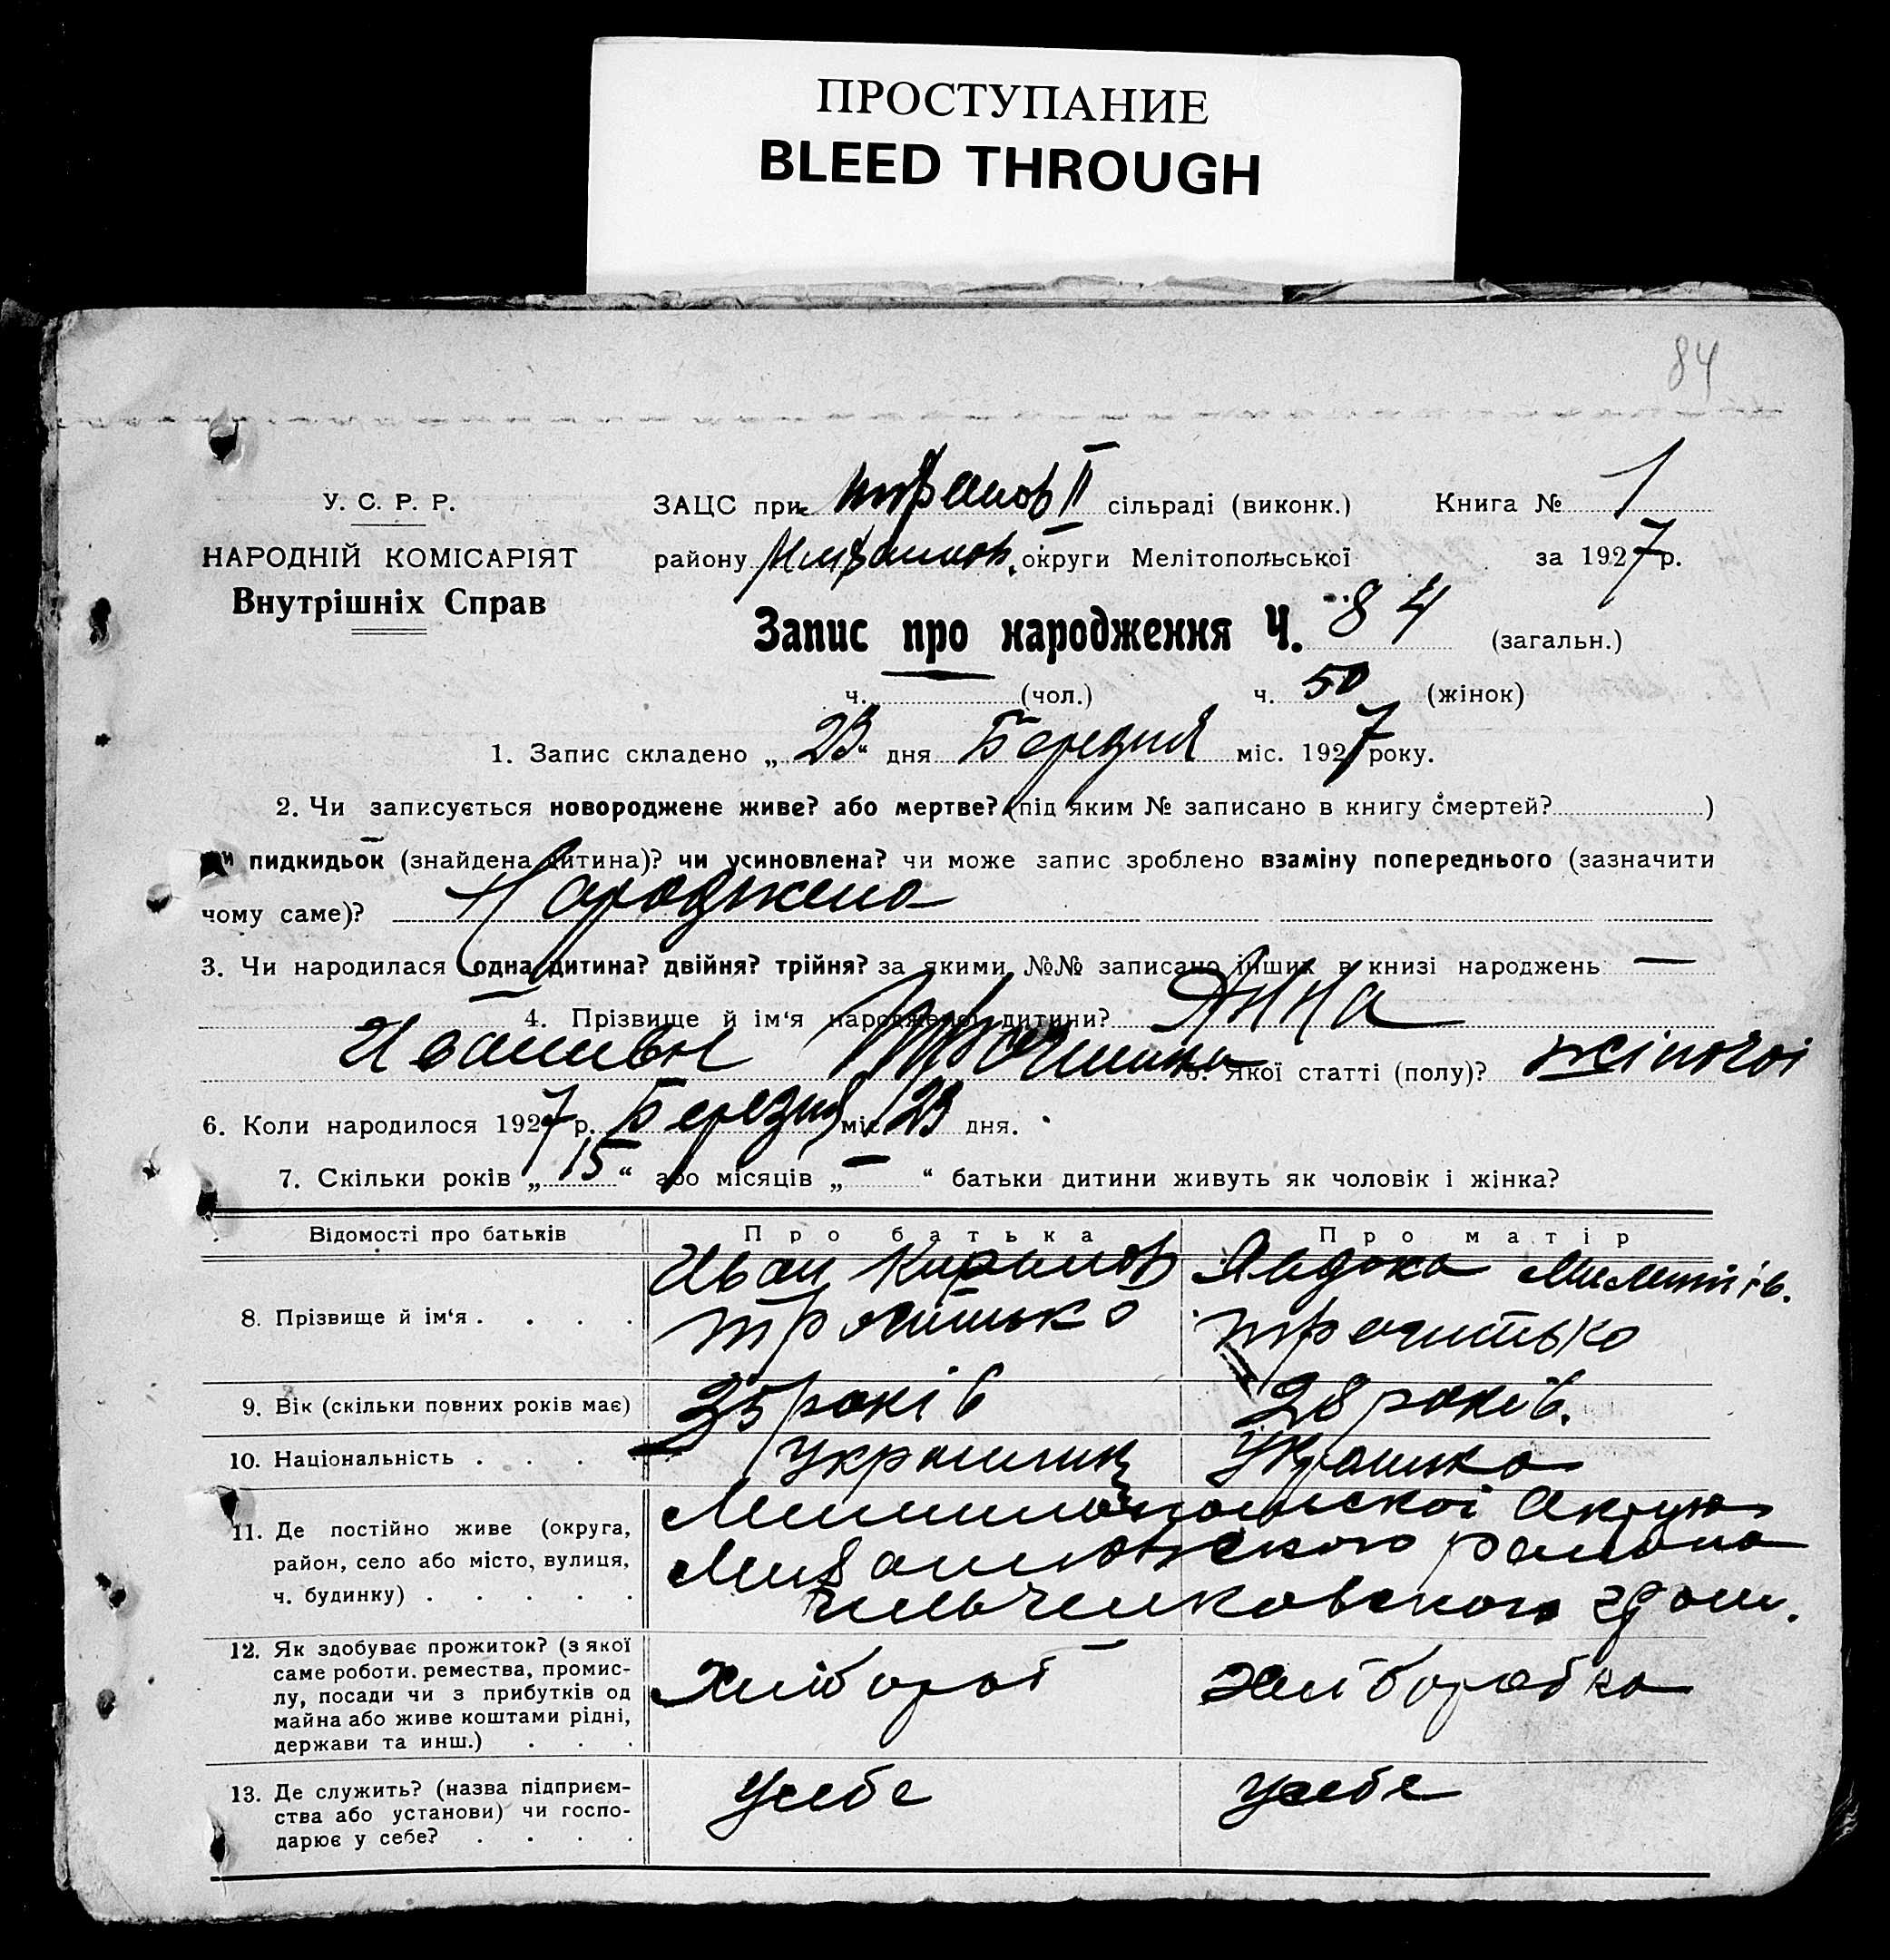 ПРОСТУПАНИЕ
BLEED THROUGH
84
У. С. Р. Р.
НАРОДНІЙ КОМІСАРІЯТ
Внутрішніх Справ
ЗАЦС при II сільраді (виконк.) Книга № 1
району округи Мелітопольської за 1927 р.
Запис про народження Ч. 84 (загальн.)
ч. (чол.) ч. 50 (жінок)
1. Запис складено „23“ дня Березня міс. 1927 року.
2. Чи записується новороджене живе? або мертве? (під яким № записано в книгу смертей? )
чи пидкидьок (знайдена дитина)? чи усиновлена? чи може запис зроблено взаміну попереднього (зазначити
чому саме)? Народжена
3. Чи народилася одна дитина? двійня? трійня? за якими №№ записано інших в книзі народжень —
4. Прізвище й ім‘я народженої дитини? Анна
5. Якої статті (полу)? жіночоі
6. Коли народилося 1927 р. Березня міс. 23 дня.
7. Скільки років „15“ або місяців „—“ батьки дитини живуть як чоловік і жінка?
Відомості про батьків Про батька Про матір
8. Прізвище й ім‘я . . . . Иван
9. Вік (скільки повних років має) 35 років 28 років.
10. Національність . . . . Украинец Украинка
11. Де постійно живе (округа,
район, село або місто, вулиця, района
ч. будинку) . . . . .
12. Як здобуває прожиток? (з якої
саме роботи. ремества, промис-
лу, посади чи з прибутків од
майна або живе коштами рідні,
держави та инш.) . . .
13. Де служить? (назва підприєм- Усебе Усебе
ства або установи) чи госпо-
дарює у себе? . . . .